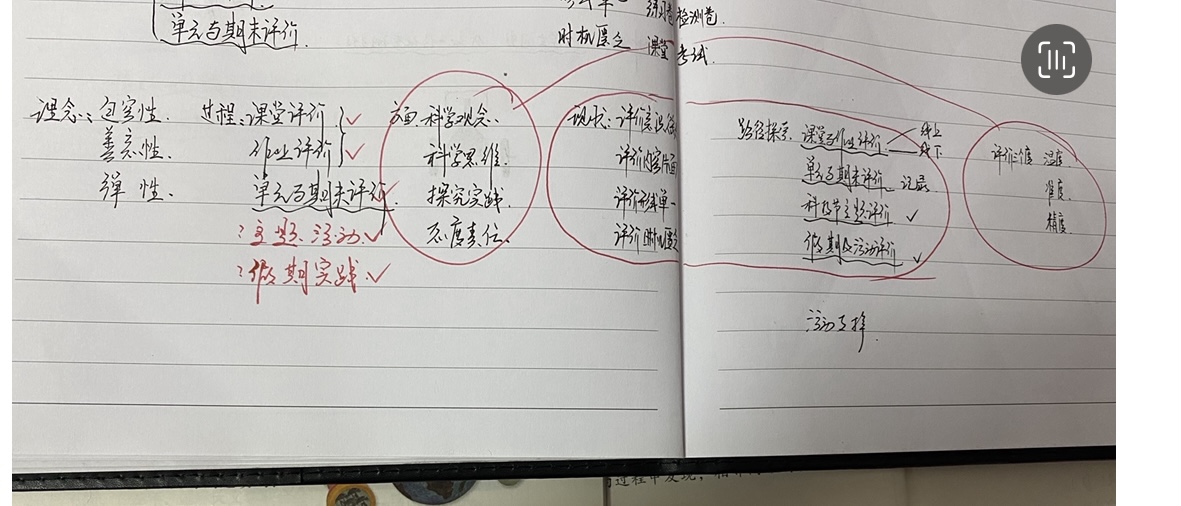 单元与期末评价.
练习卷 检测卷.
时机匮乏 课堂 考试.
理念: 包容性.
善意性.
弹性.
过程: 课堂评价
作业评价
单元与期末评价
?主题活动
?假期实践
方面: 科学观念.
科学思维.
探究实践.
态度责任.
现状: 评价意识
评价内容片面
评价形式单一
评价时机匮乏
路径探寻: 课堂与作业评价 线上
线下
单元与期末评价 记录
科技节主题评价
假期及活动评价
活动支撑.
评价 温度
准度.
精度.
过程中发现,